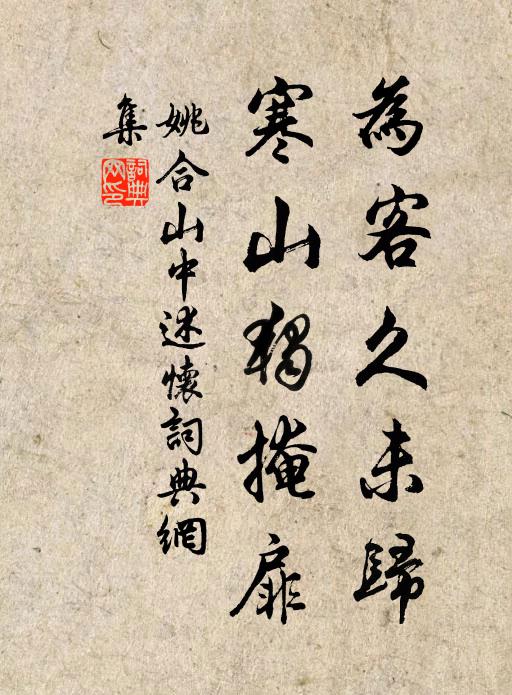 為客久未歸
寒山獨掩扉
姚合山中述懷詞典網
集
詞典網印